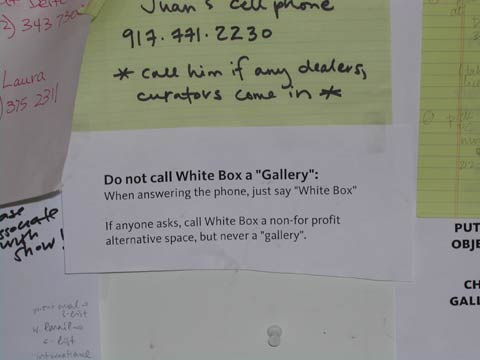 Juan's cell phone
917.771.2230
* call him if any dealers,
curators come in *
Laura
375 2311
Do not call White Box a "Gallery":
When answering the phone, just say "White Box"
If anyone asks, call White Box a non-for profit
alternative space, but never a "gallery".
with
show!
e-list
international
PUT
OBJE
CH
GALL